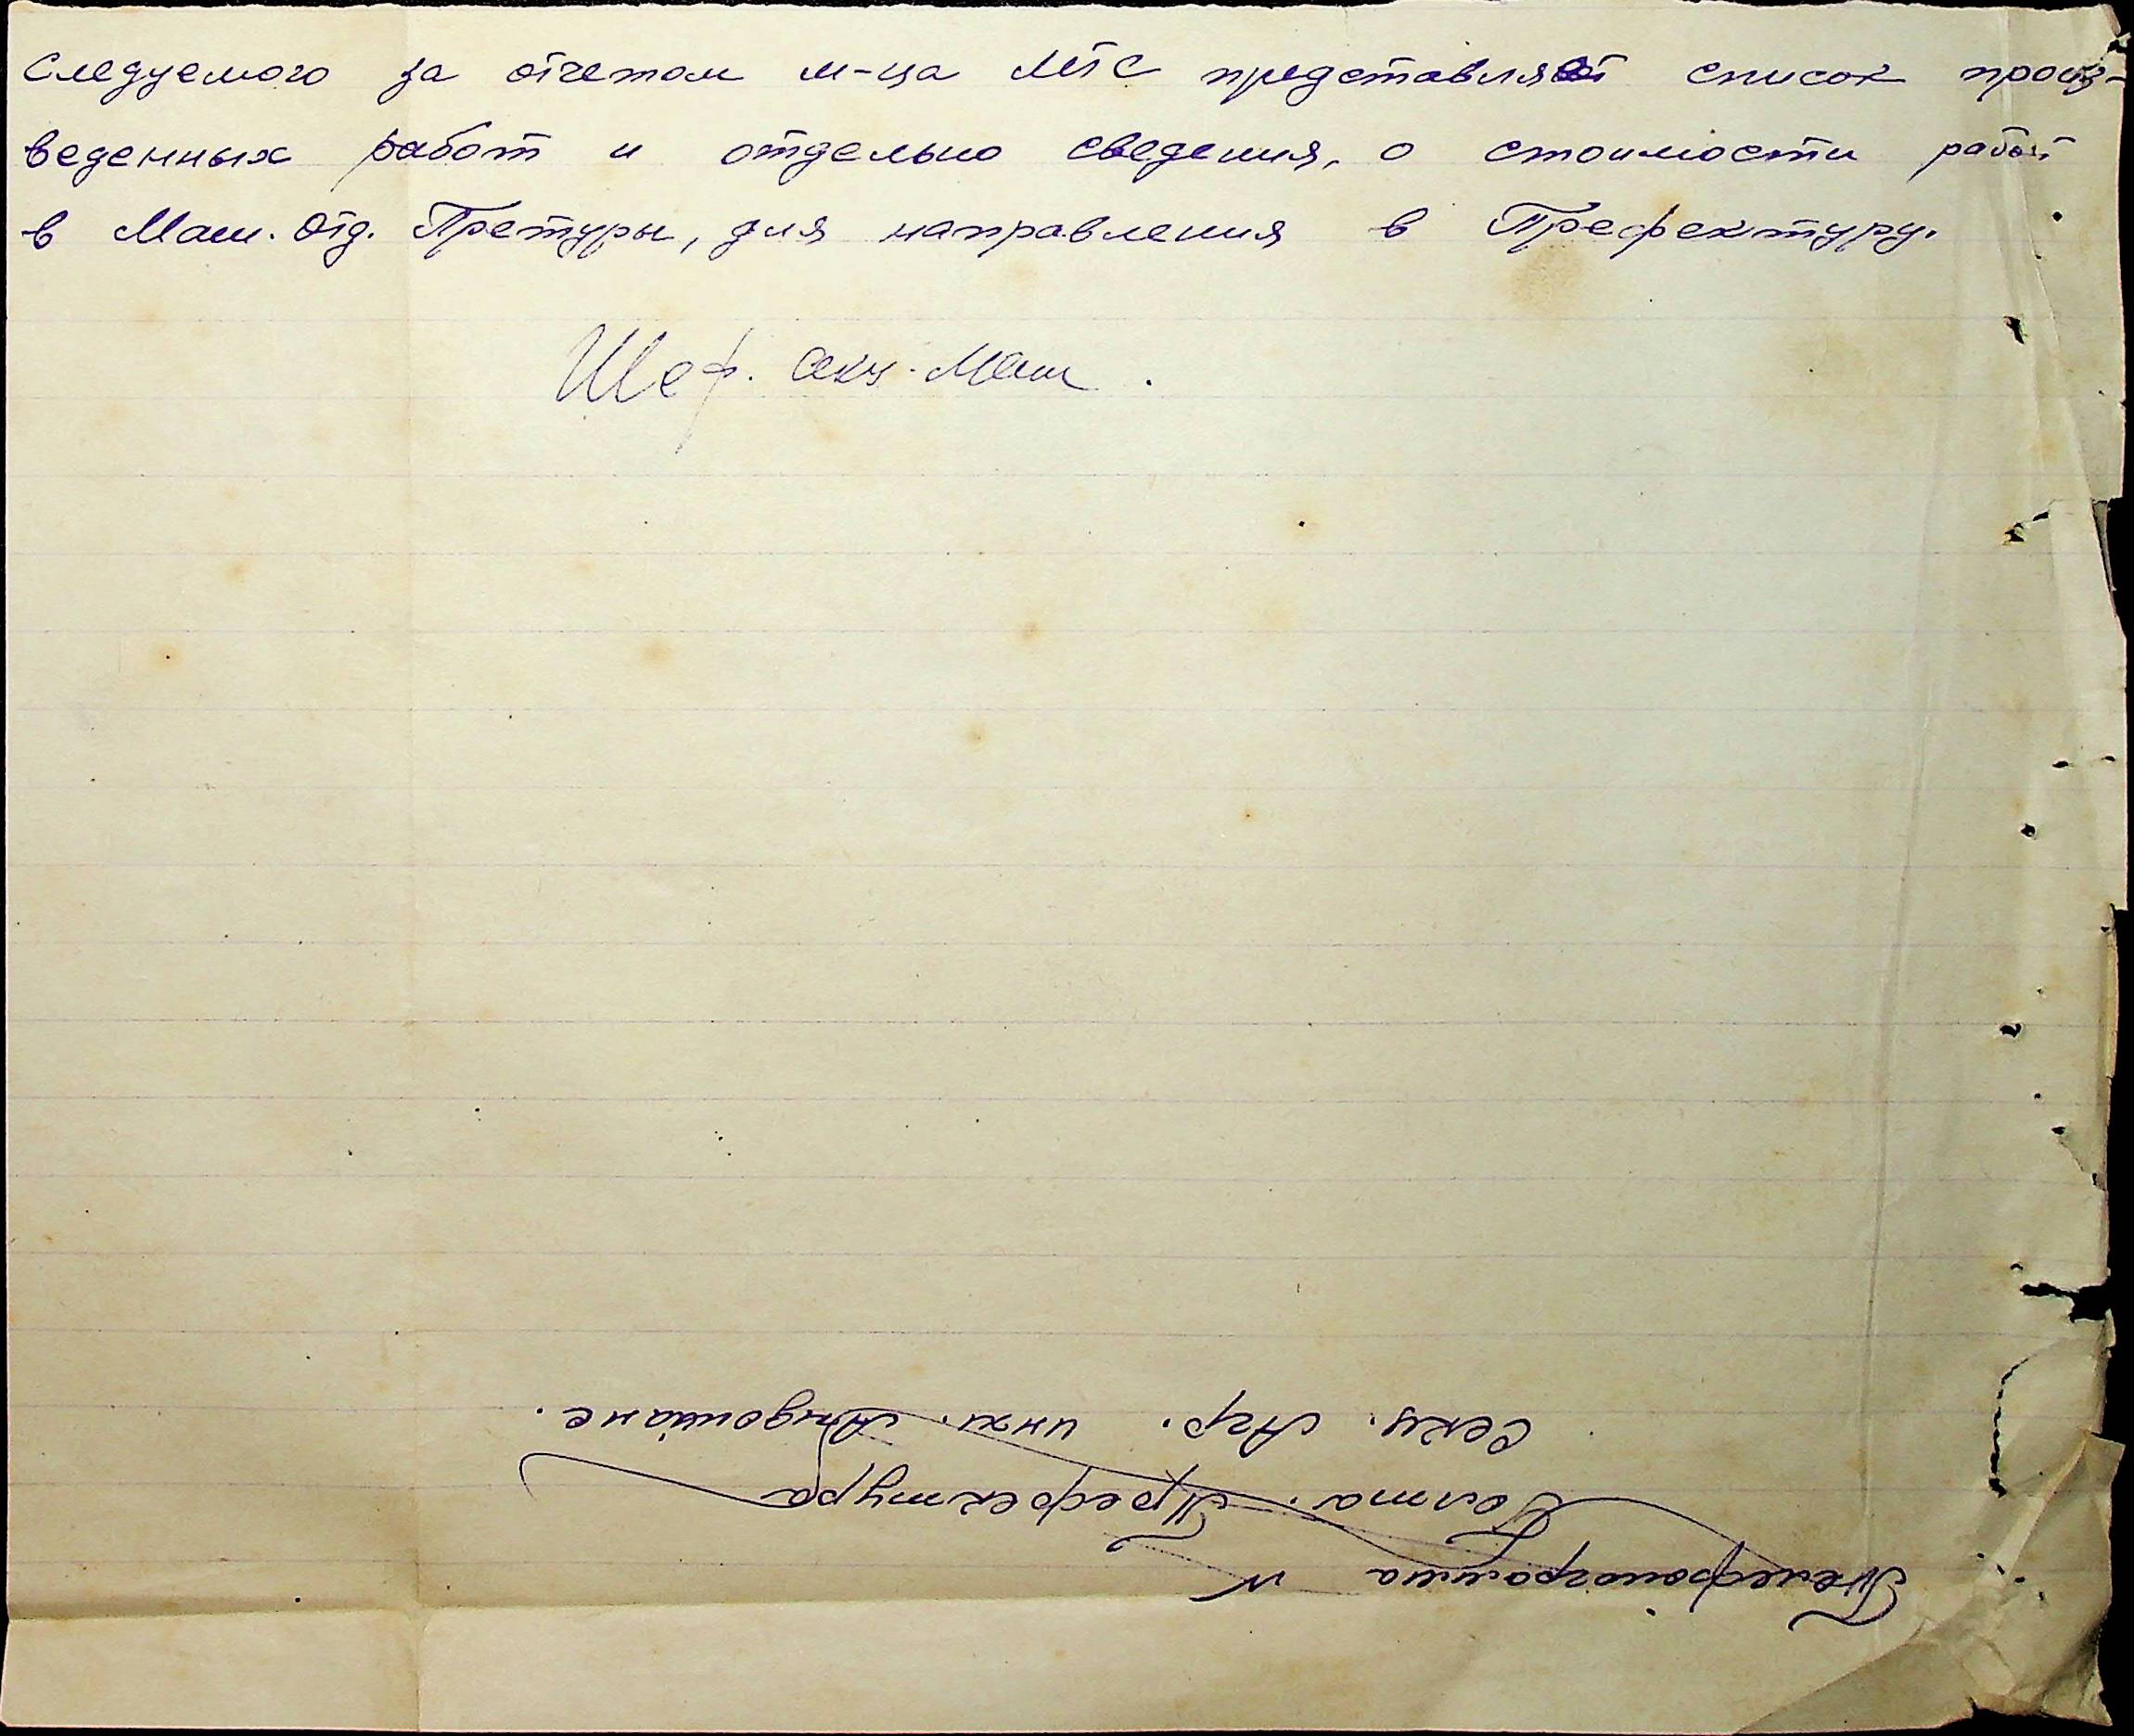 следуемого за отчетом м-ца МТС представляет список произ-
веденных работ и отдельно сведения, о стоимости работ
в Маш. Отд. Претуры, для направления в Префектуру.
Шеф. секц. Маш.
Телефонограмма №
Голта. Префектура
секц. Агр. инж.